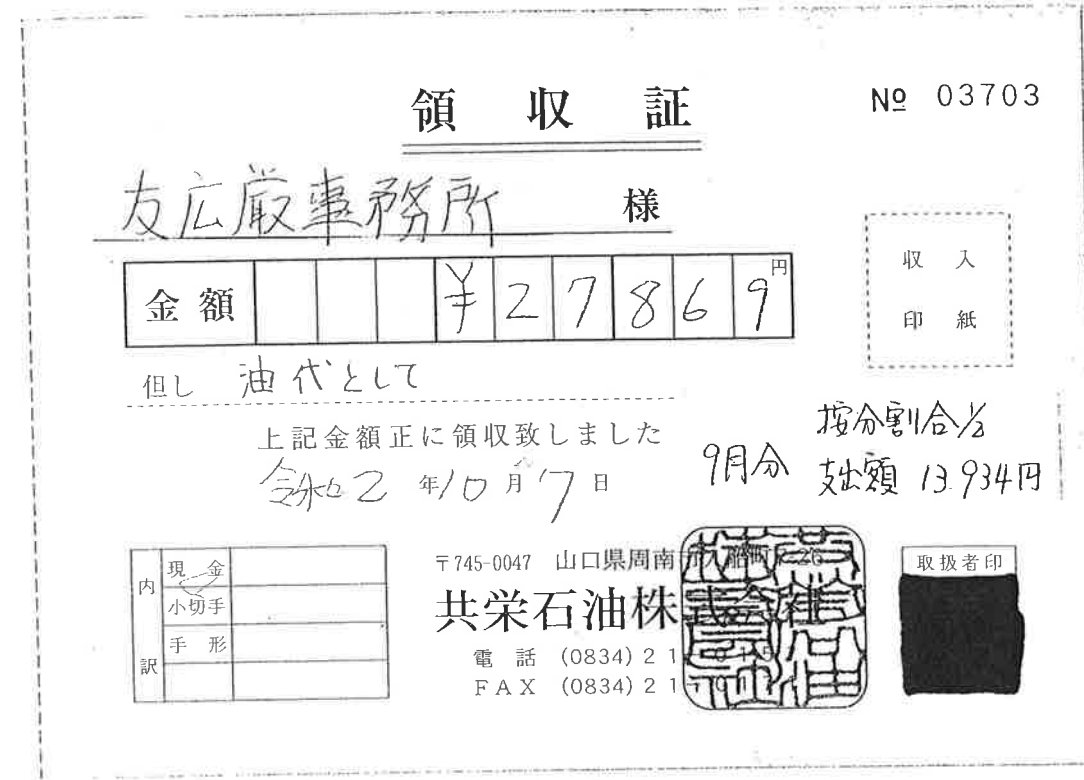 領収証
№ 03703
友広巌事務所 様
金額 ¥27869円
収入
印紙
但し 油代として
上記金額正に領収致しました
令和2年10月7日
9月分
按分割合1/2
支出額 13,934円
内訳
現金
小切手
手形
〒745-0047 山口県周南
共栄石油株式会社
電話 (0834) 21
FAX (0834) 21
取扱者印